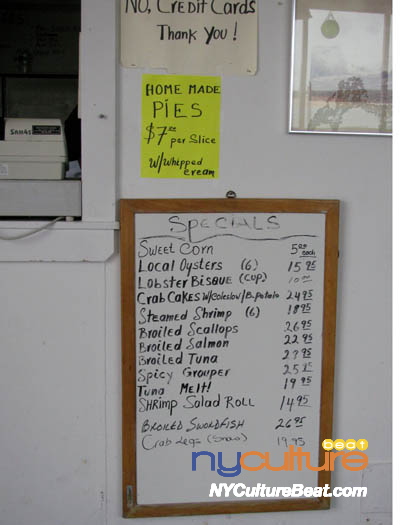 NO, CREDIT CARDS
THANK YOU !
HOME MADE
PIES
$7.00 per Slice
W/Whipped
cream
SPECIALS
Sweet Corn 5.00 each
Local Oysters (6) 15.95
Lobster Bisque (cup) 10.00
Crab Cakes W/Coleslow/B.potato 24.95
Steamed Shrimp (6) 18.95
Broiled Scallops 26.95
Broiled Salmon 22.95
Broiled Tuna 23.95
Spicy Grouper 25.95
Tuna Melt! 19.95
SHRimp Salad Roll 14.95
BROILED SWORDFISH 26.95
Crab Legs (Snow) 19.95
nyculture beat
NYCultureBeat.com